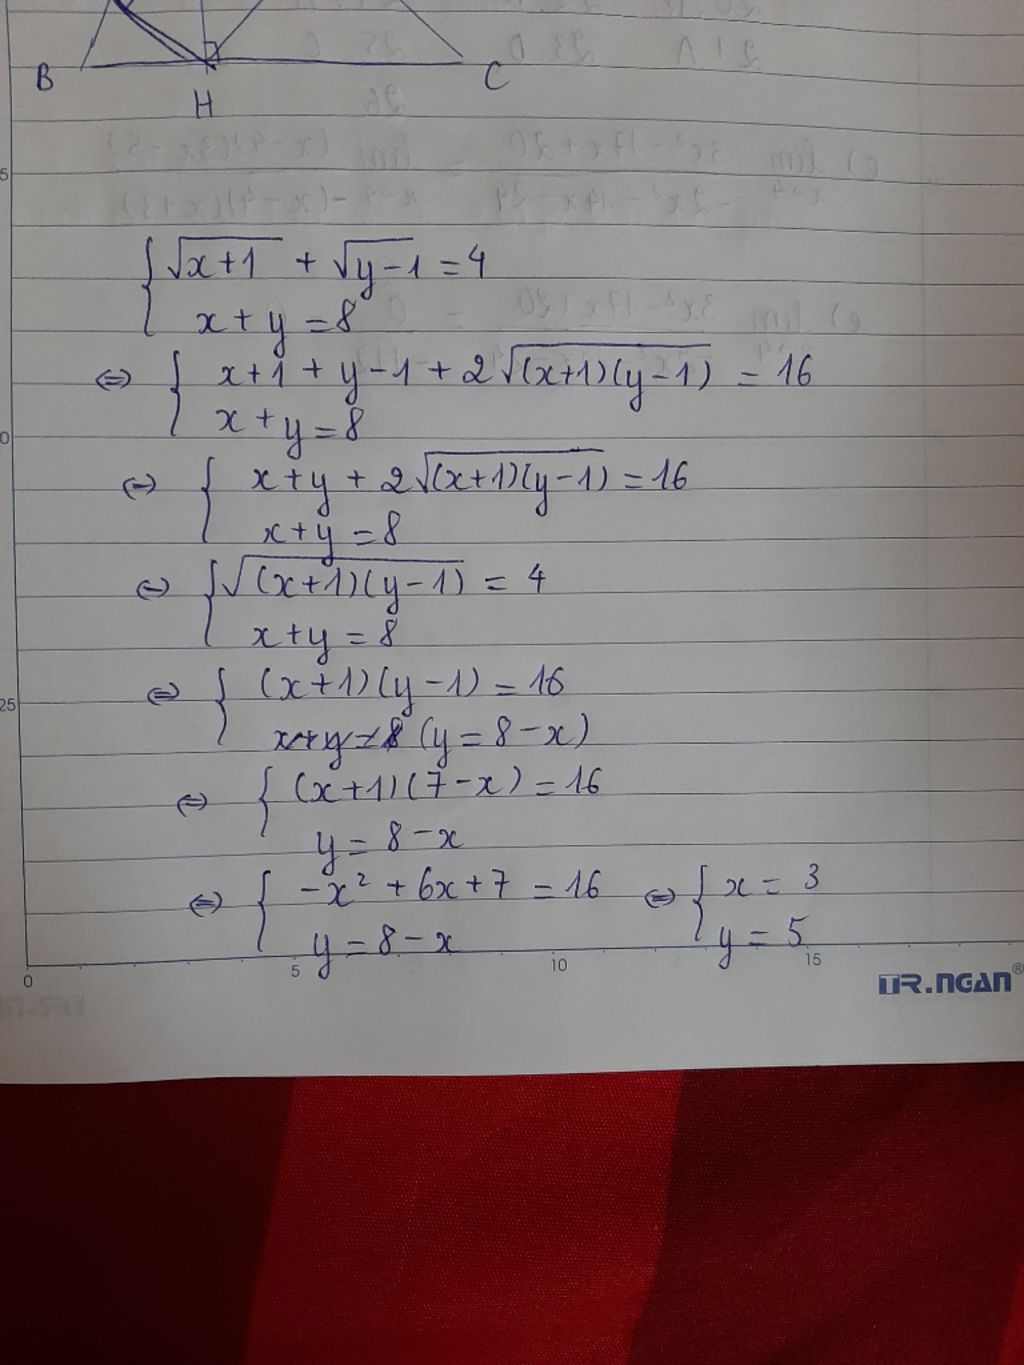 B
H
C
{ √(x+1) + √(y-1) = 4
x + y = 8
⇔ { x+1 + y-1 + 2√((x+1)(y-1)) = 16
x + y = 8
⇔ { x+y + 2√((x+1)(y-1)) = 16
x+y = 8
⇔ { √((x+1)(y-1)) = 4
x+y = 8
⇔ { (x+1)(y-1) = 16
x+y=8 (y = 8-x)
⇔ { (x+1)(7-x) = 16
y = 8-x
⇔ { -x² + 6x + 7 = 16 ⇔ { x = 3
y = 8-x y = 5
0 5 10 15
25
TR.NGAN®